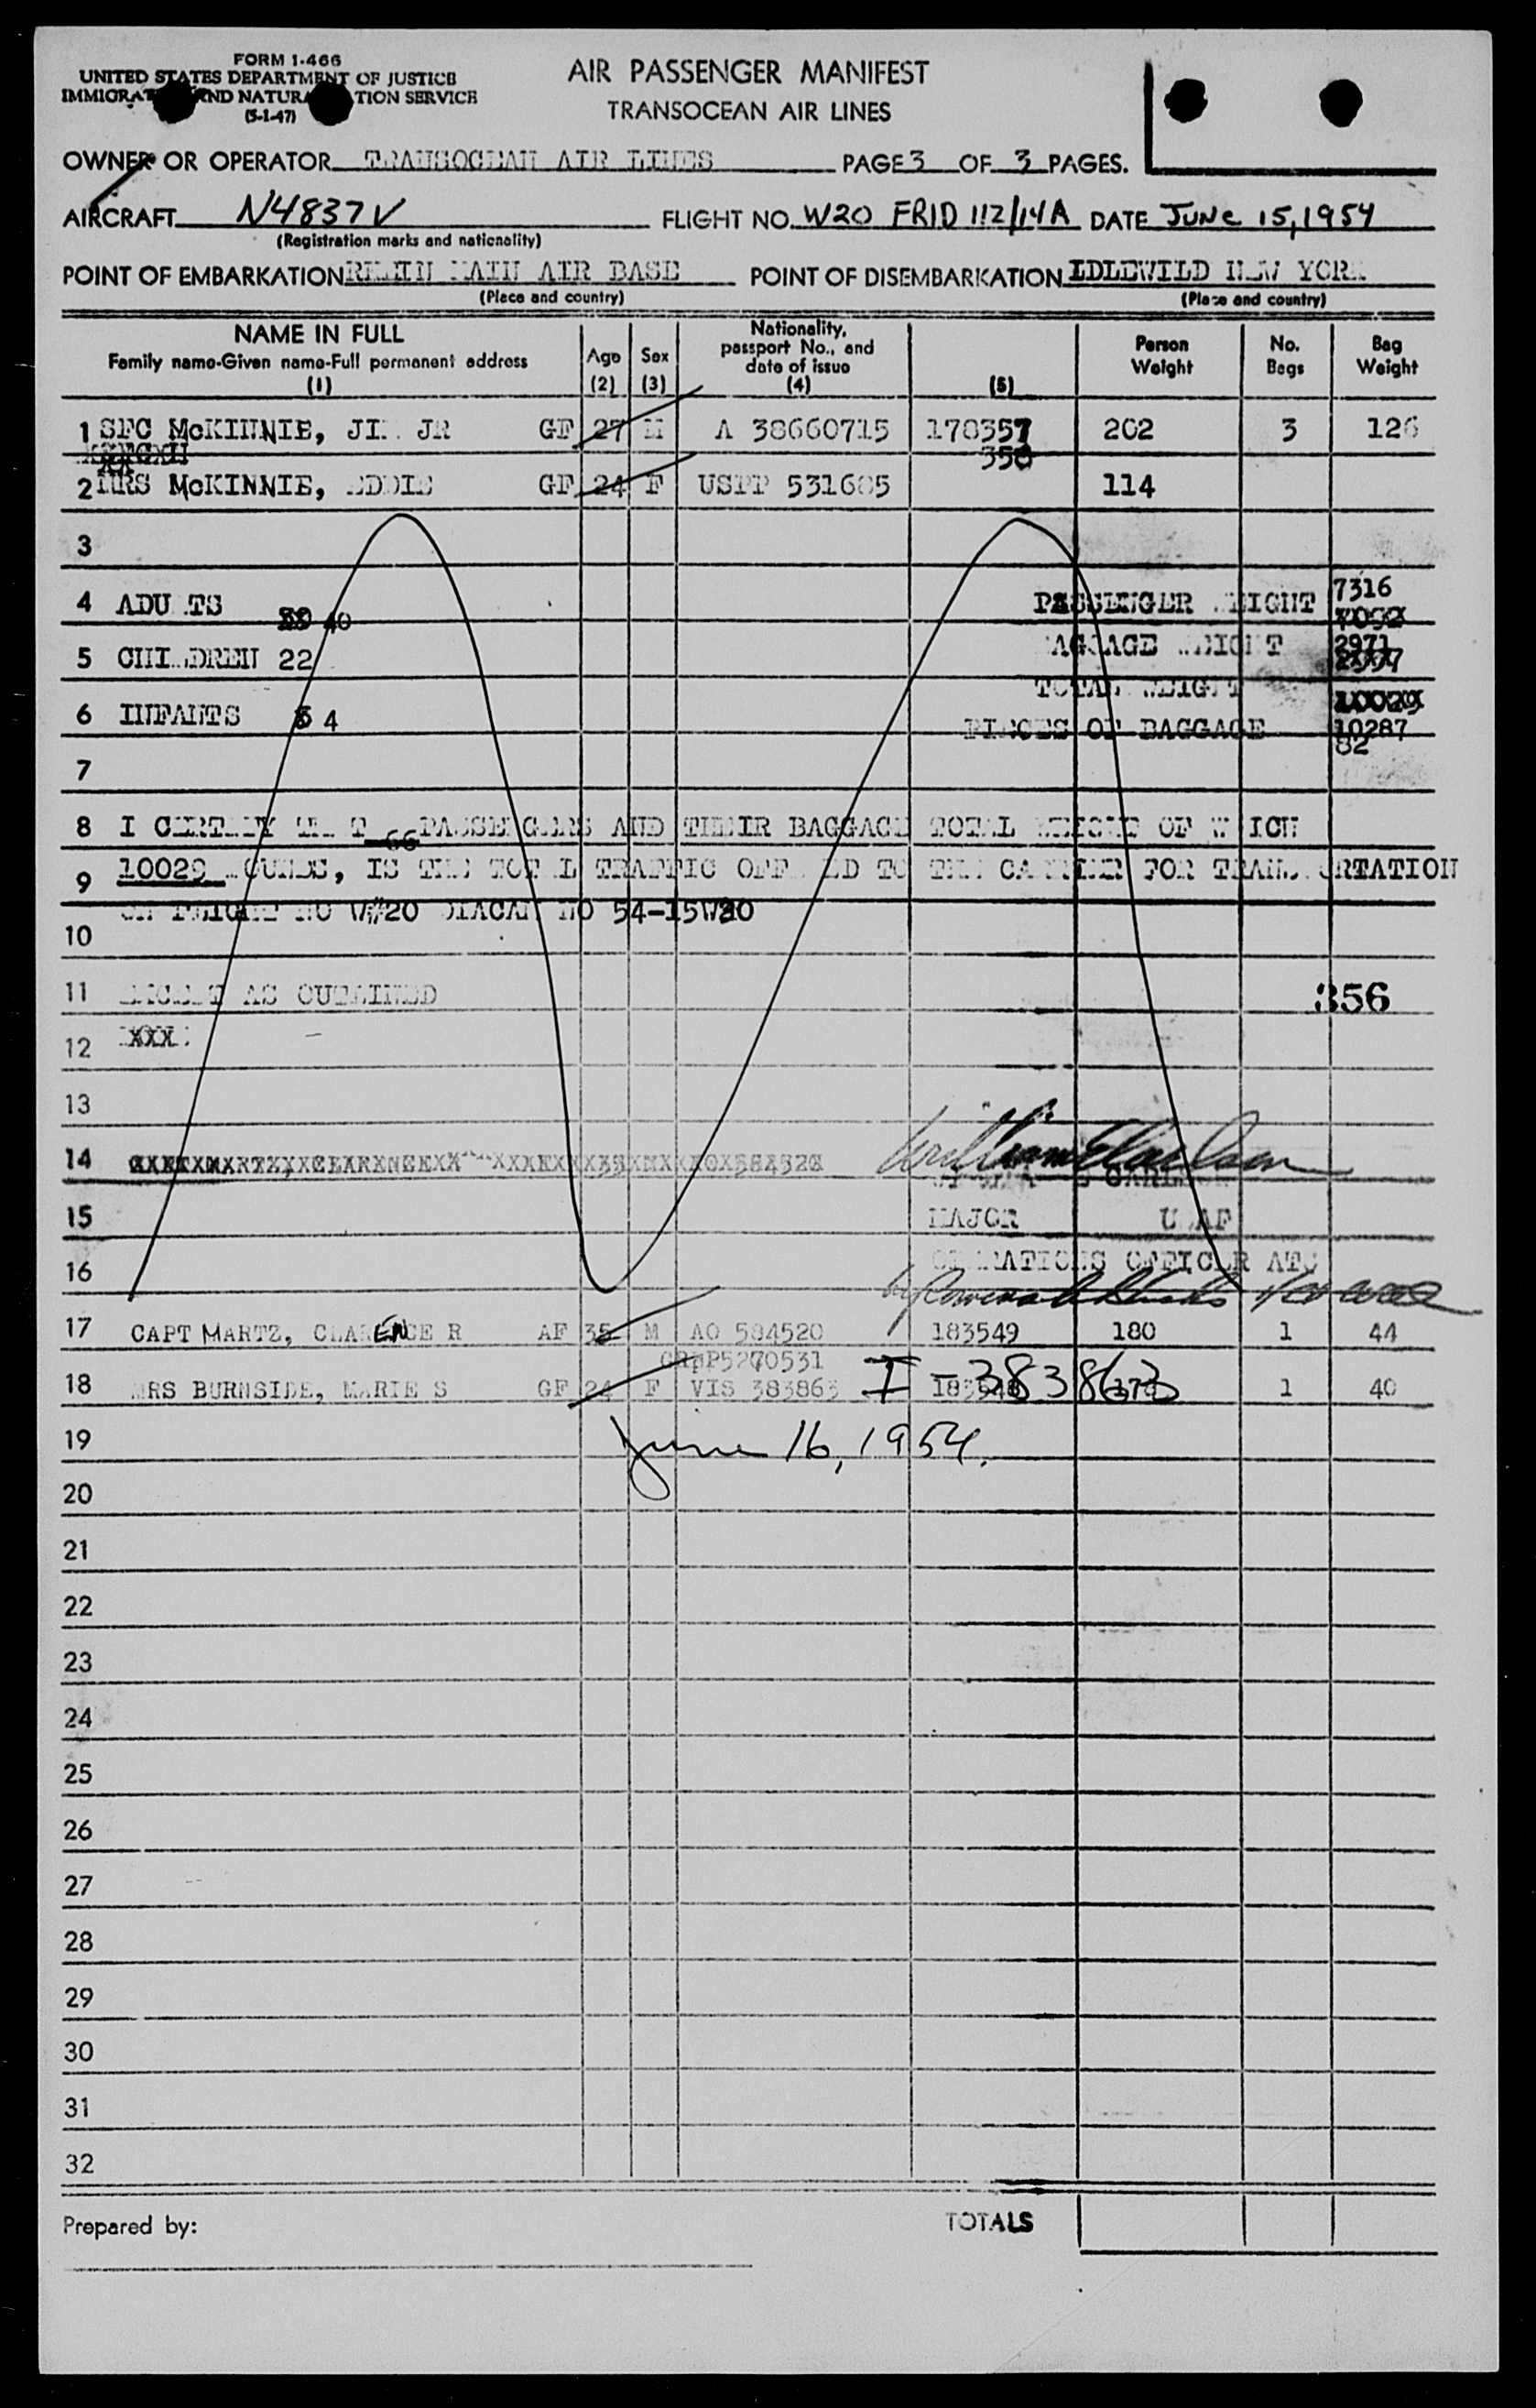 FORM I-466
UNITED STATES DEPARTMENT OF JUSTICE
IMMIGRAT ND NATURA TION SERVICE
(5-1-47)
AIR PASSENGER MANIFEST
TRANSOCEAN AIR LINES
OWNER OR OPERATOR TRANSOCEAN AIR LINES PAGE 3 OF 3 PAGES.
AIRCRAFT N4837V FLIGHT NO. W20 FRID 112/14A DATE JUNE 15, 1954
(Registration marks and nationality)
POINT OF EMBARKATION RHEIN MAIN AIR BASE POINT OF DISEMBARKATION IDLEWILD NEW YORK
(Place and country) (Place and country)
NAME IN FULL
Family name-Given name-Full permanent address
(1)
Age
(2)
Sex
(3)
Nationality,
passport No., and
date of issue
(4)
(5)
Person
Weight
No.
Bags
Bag
Weight
1 SFC McKINNIE, JI JR GF 27 M A 38660715 178357 202 3 126
358
2 MRS McKINNIE, EDDIE GF 24 F USPP 531685 114
3
4 ADU TS 40 PASSENGER WEIGHT 7316
5 CHILDREN 22 BAGGAGE WEIGHT 2971
TOTAL WEIGHT
6 INFANTS 4 PIECES OF BAGGAGE 10287
82
7
8 I CERTIFY THAT 66 PASSENGERS AND THEIR BAGGAGE TOTAL WEIGHT OF WHICH
9 10029 POUNDS, IS THE TOTAL TRAFFIC OFFERED TO THE CARRIER FOR TRANSPORTATION
ON FLIGHT NO W#20 DIACAN NO 54-15W20
10
11 EXCEPT AS OUTLINED 356
12 XXX
13
14
15 MAJOR USAF
16 OPERATIONS OFFICER ATC
17 CAPT MARTZ, CLARENCE R AF 35 M AO 584520 183549 180 1 44
GRMP5270531
18 MRS BURNSIDE, MARIE S GF 24 F VIS 383863 I-383863 1 40
19 June 16, 1954.
20
21
22
23
24
25
26
27
28
29
30
31
32
Prepared by: TOTALS